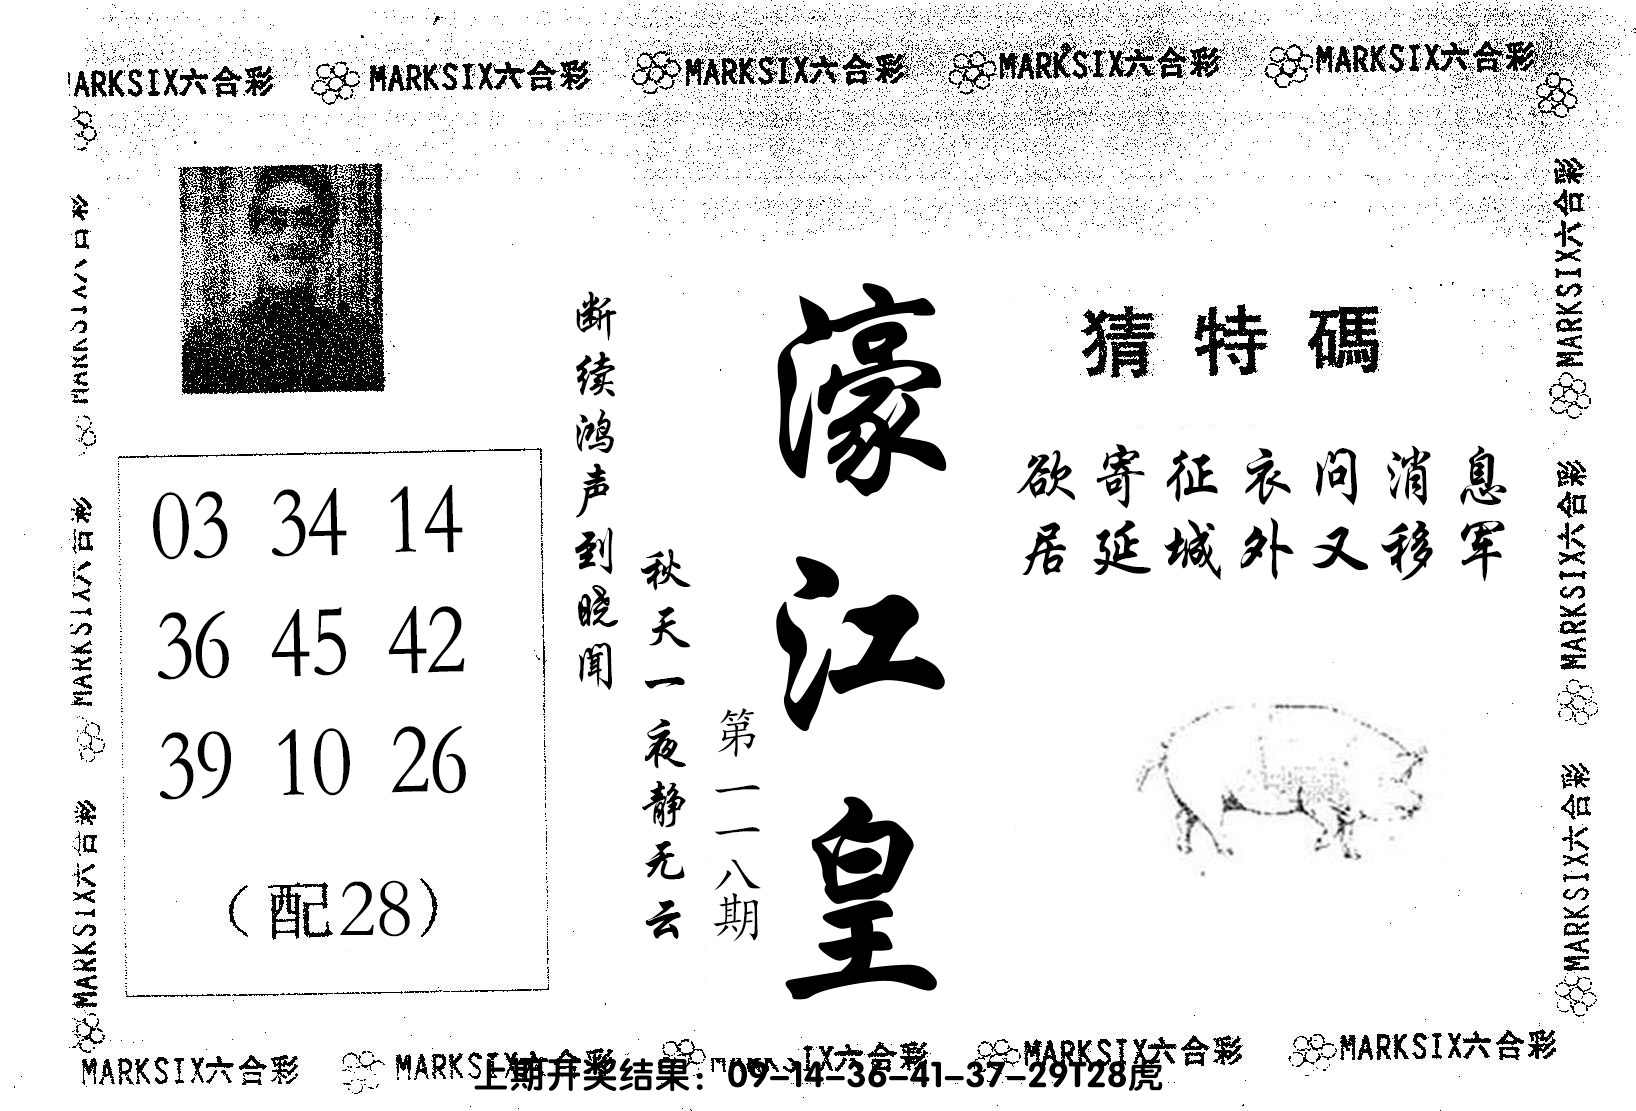 MARKSIX六合彩 MARKSIX六合彩 MARKSIX六合彩 MARKSIX六合彩
猜特碼
欲寄征衣问消息
居延城外又移军
濠江皇
第一一八期
秋天一夜静无云
断续鸿声到晓闻
03 34 14
36 45 42
39 10 26
(配28)
MARKSIX六合彩
MARKSIX六合彩
MARKSIX六合彩
MARKSIX六合彩
MARKSIX六合彩
MARKSIX六合彩 MARKSIX六合彩 MARKSIX六合彩 MARKSIX六合彩
上期开奖结果：09-14-36-41-37-29T28虎